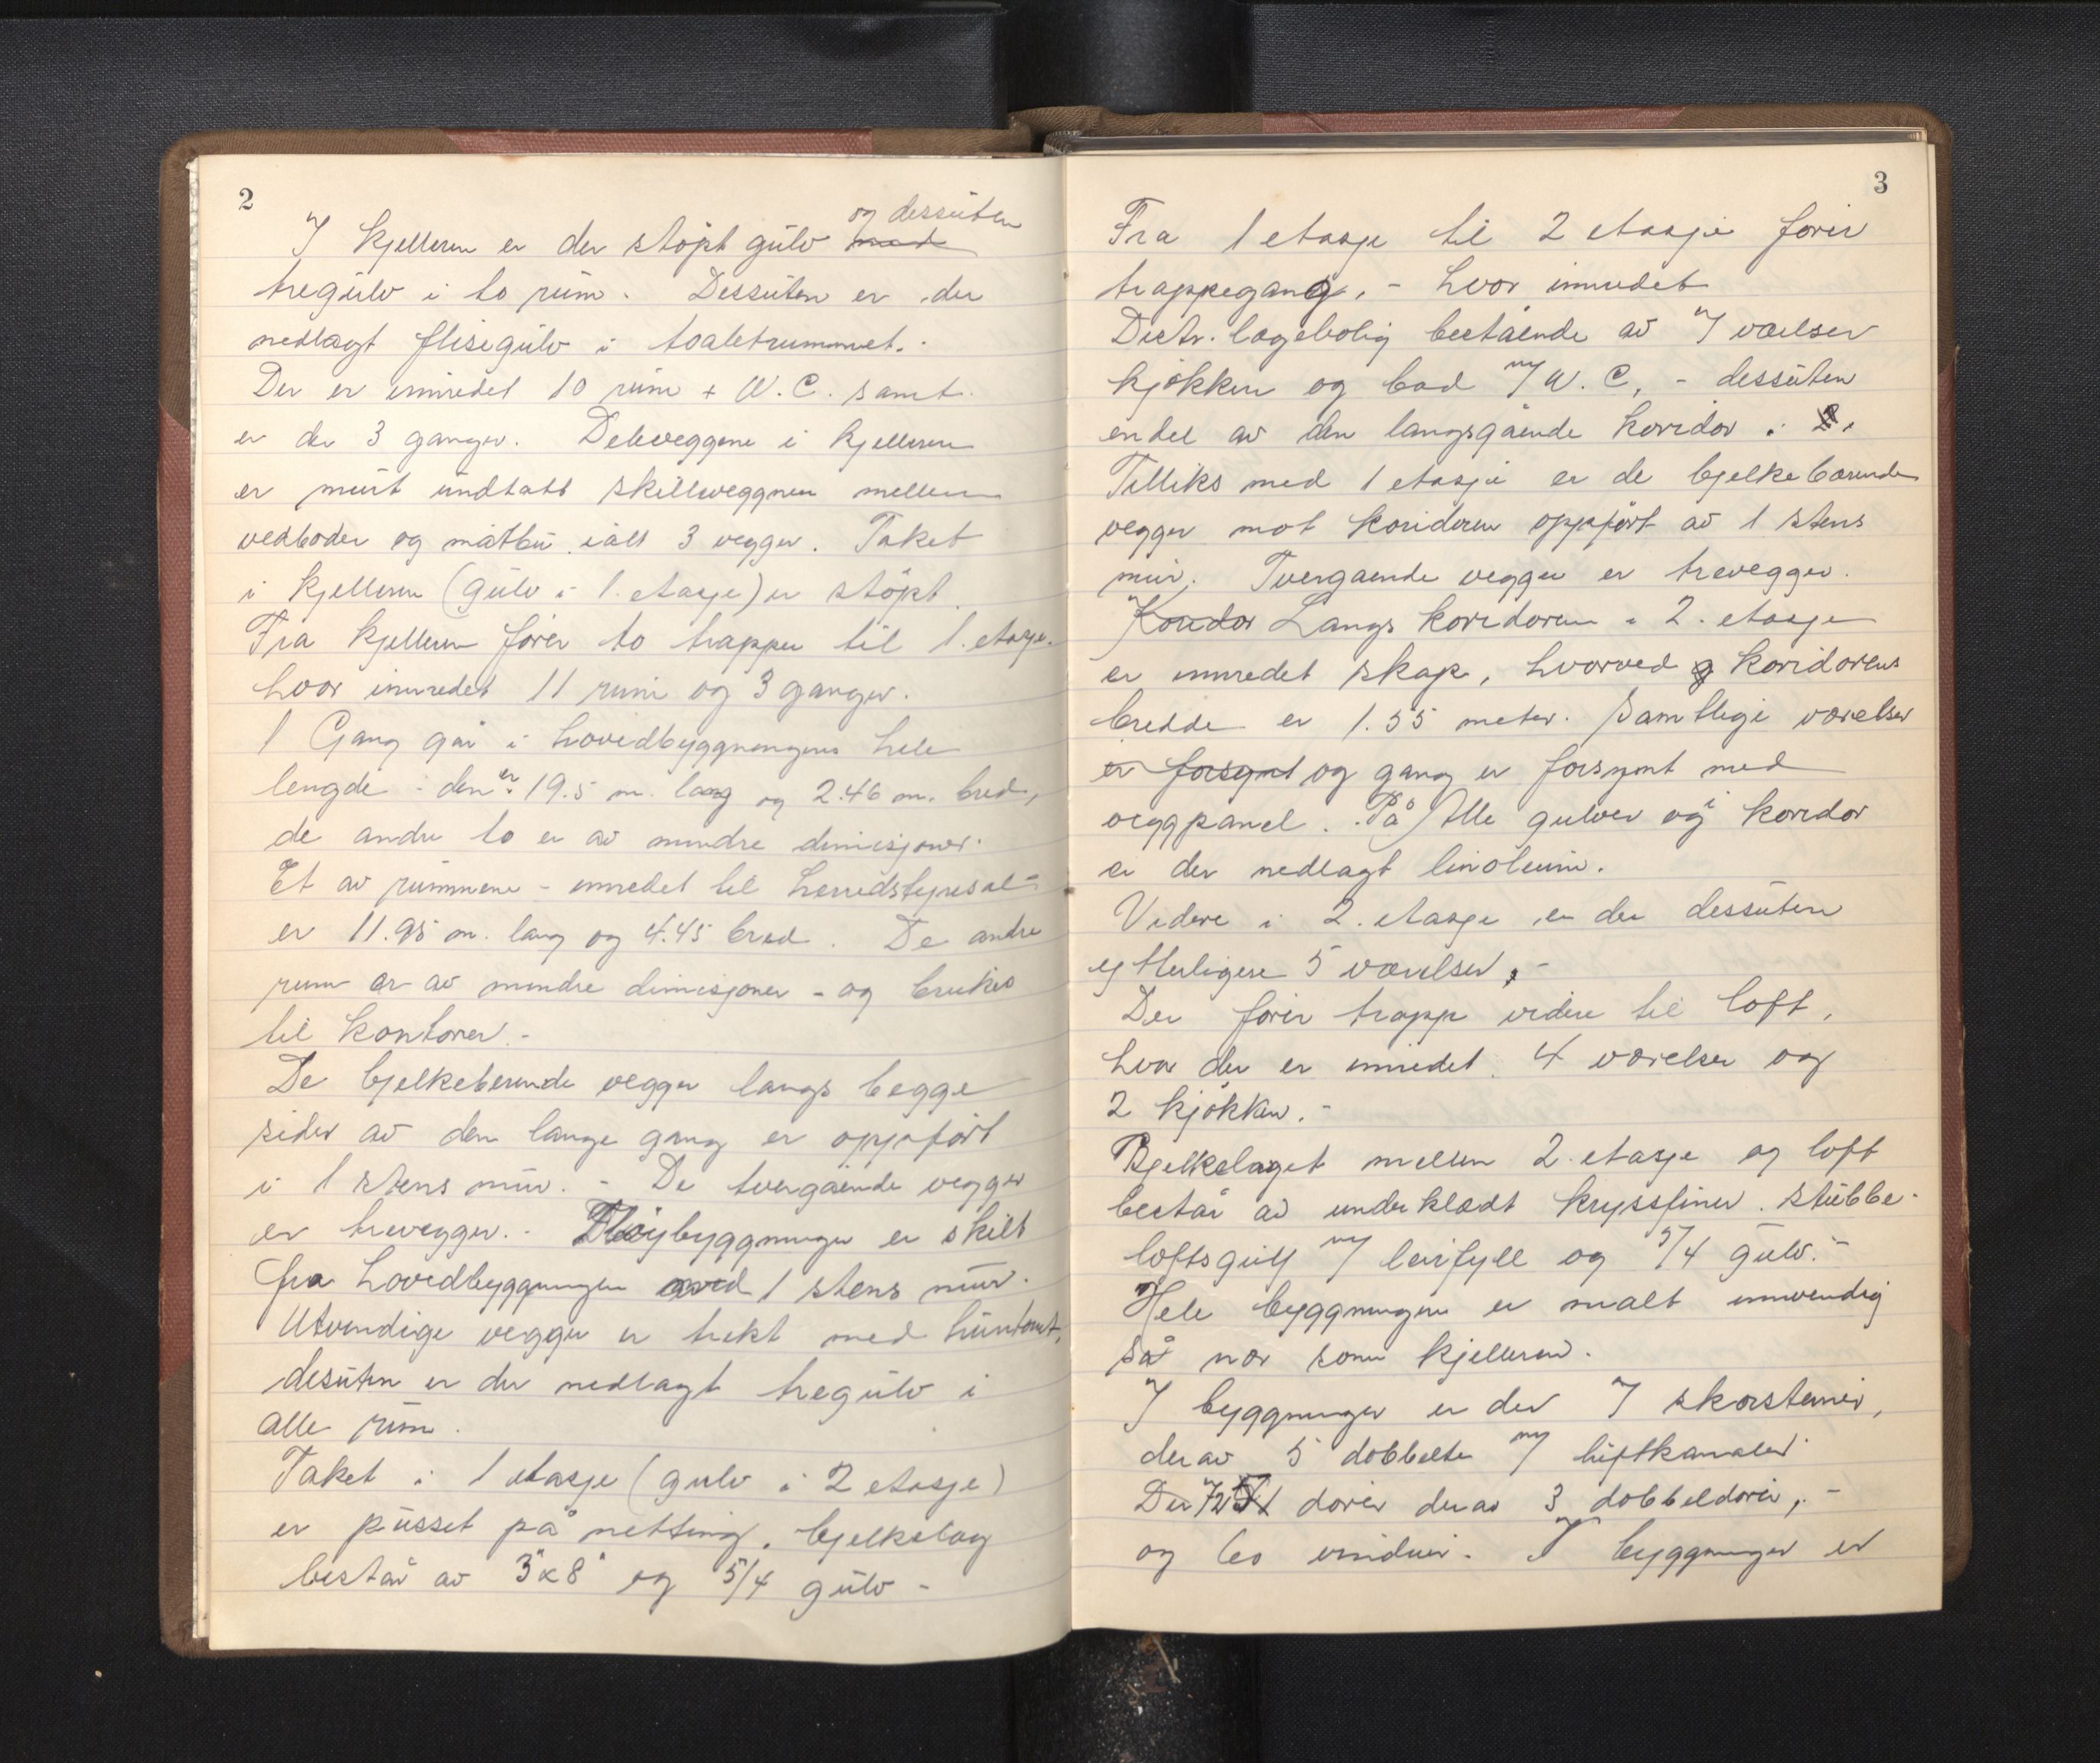 2
og dessuten
I kjelleren er der støpt gulv med
tregulv i to rum. Dessuten er der
nedlagt flisegulv i toaletrummet.
Der er innredet 10 rum + W.C. samt
er der 3 ganger. Deleveggene i kjelleren
er murt undtatt skilleveggnen mellem
vedboder og matbu ialt 3 vegger. Taket
i kjelleren (gulv i 1. etasje) er støpt.
Fra kjelleren fører to trapper til 1. etasje.
hvor innredet 11 rum og 3 ganger.
1 Gang går i hovedbyggningens hele
lengde - den er 19.5 m. lang og 2.46 m. bred,
de andre to er av mindre dimisjoner.
Et av rummene - innredet til herredstyresal -
er 11.95 m. lang og 4.45 bred. De andre
rum er av mindre dimisjoner - og brukes
til kontorer. -
De bjelkeberende vegger langs begge
sider av den lange gang er oppført
i 1 stens mur. - De tvergående vegger
er trevegger. - Fløybyggningen er skilt
fra hovedbyggningen med 1 stens mur.
Utvendige vegger er trekt med huntonit,
desuten er der nedlagt tregulv i
alle rum.
Taket i 1 etasje (gulv i 2 etasje)
er pusset på netting. bjelkelag
består av 3"x8" og 5/4 gulv -
3
Fra 1 etasje til 2 etasje fører
trappegang, - hvor innredet
Distr. lægebolig bestående av 7 værelser
kjøkken og bad m/ W.C. - dessuten
endel av den langsgående korridor.
Tilliks med 1 etasje er de bjelkebærende
vegger mot koridoren oppført av 1 stens
mur. Tvergaende vegger er trevegger.
Koridor Langs koridoren i 2. etasje
er innredet skap, hvorved koridorens
bredde er 1.55 meter. Samtlige værelser
er forsynt og gang er forsynt med
veggpanel. På Alle gulver og i koridor
er der nedlagt linoleum.
Videre i 2. etasje er der dessuten
ytterligere 5 værelser. -
Der fører trapp videre til loft,
hvor der er innredet 4 værelser og
2 kjøkken. -
Bjelkelaget mellem 2. etasje og loft
består av underklædt kryssfiner. stubbe-
loftsgulv m/ leirfyll og 5/4 gulv. -
Hele byggningen er malt innvendig
så nær som kjelleren.
I byggningen er der 7 skorstener,
derav 5 dobbelte m/ luftkanaler
Der 72 dører derav 3 dobbeldører, -
og 60 vinduer. I byggningen er